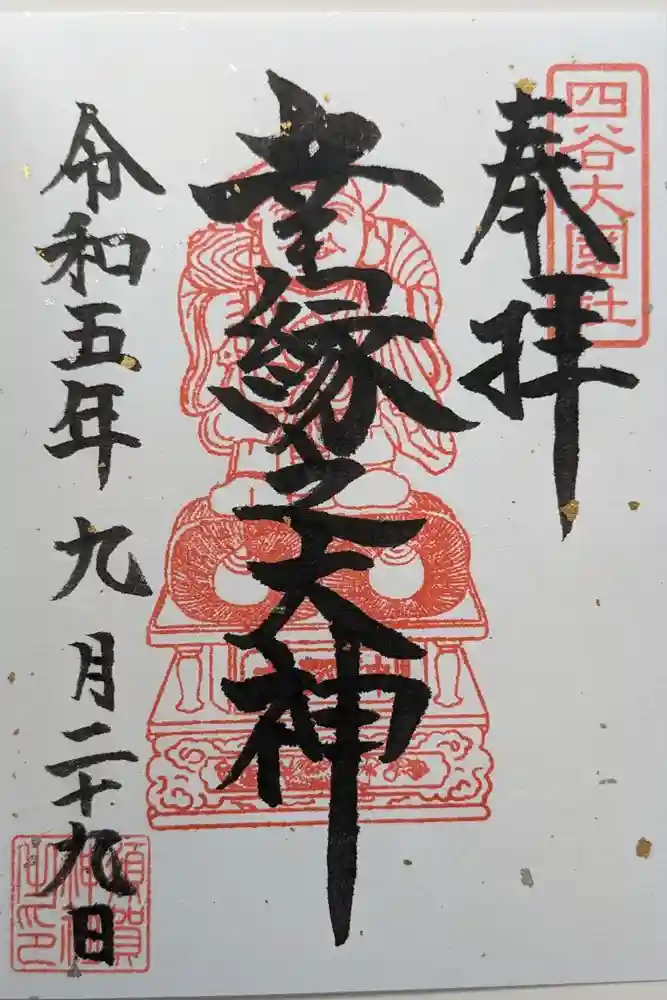 四谷大國社
奉拝
幸縁之大神
令和五年九月二十九日
須賀
神社
之印